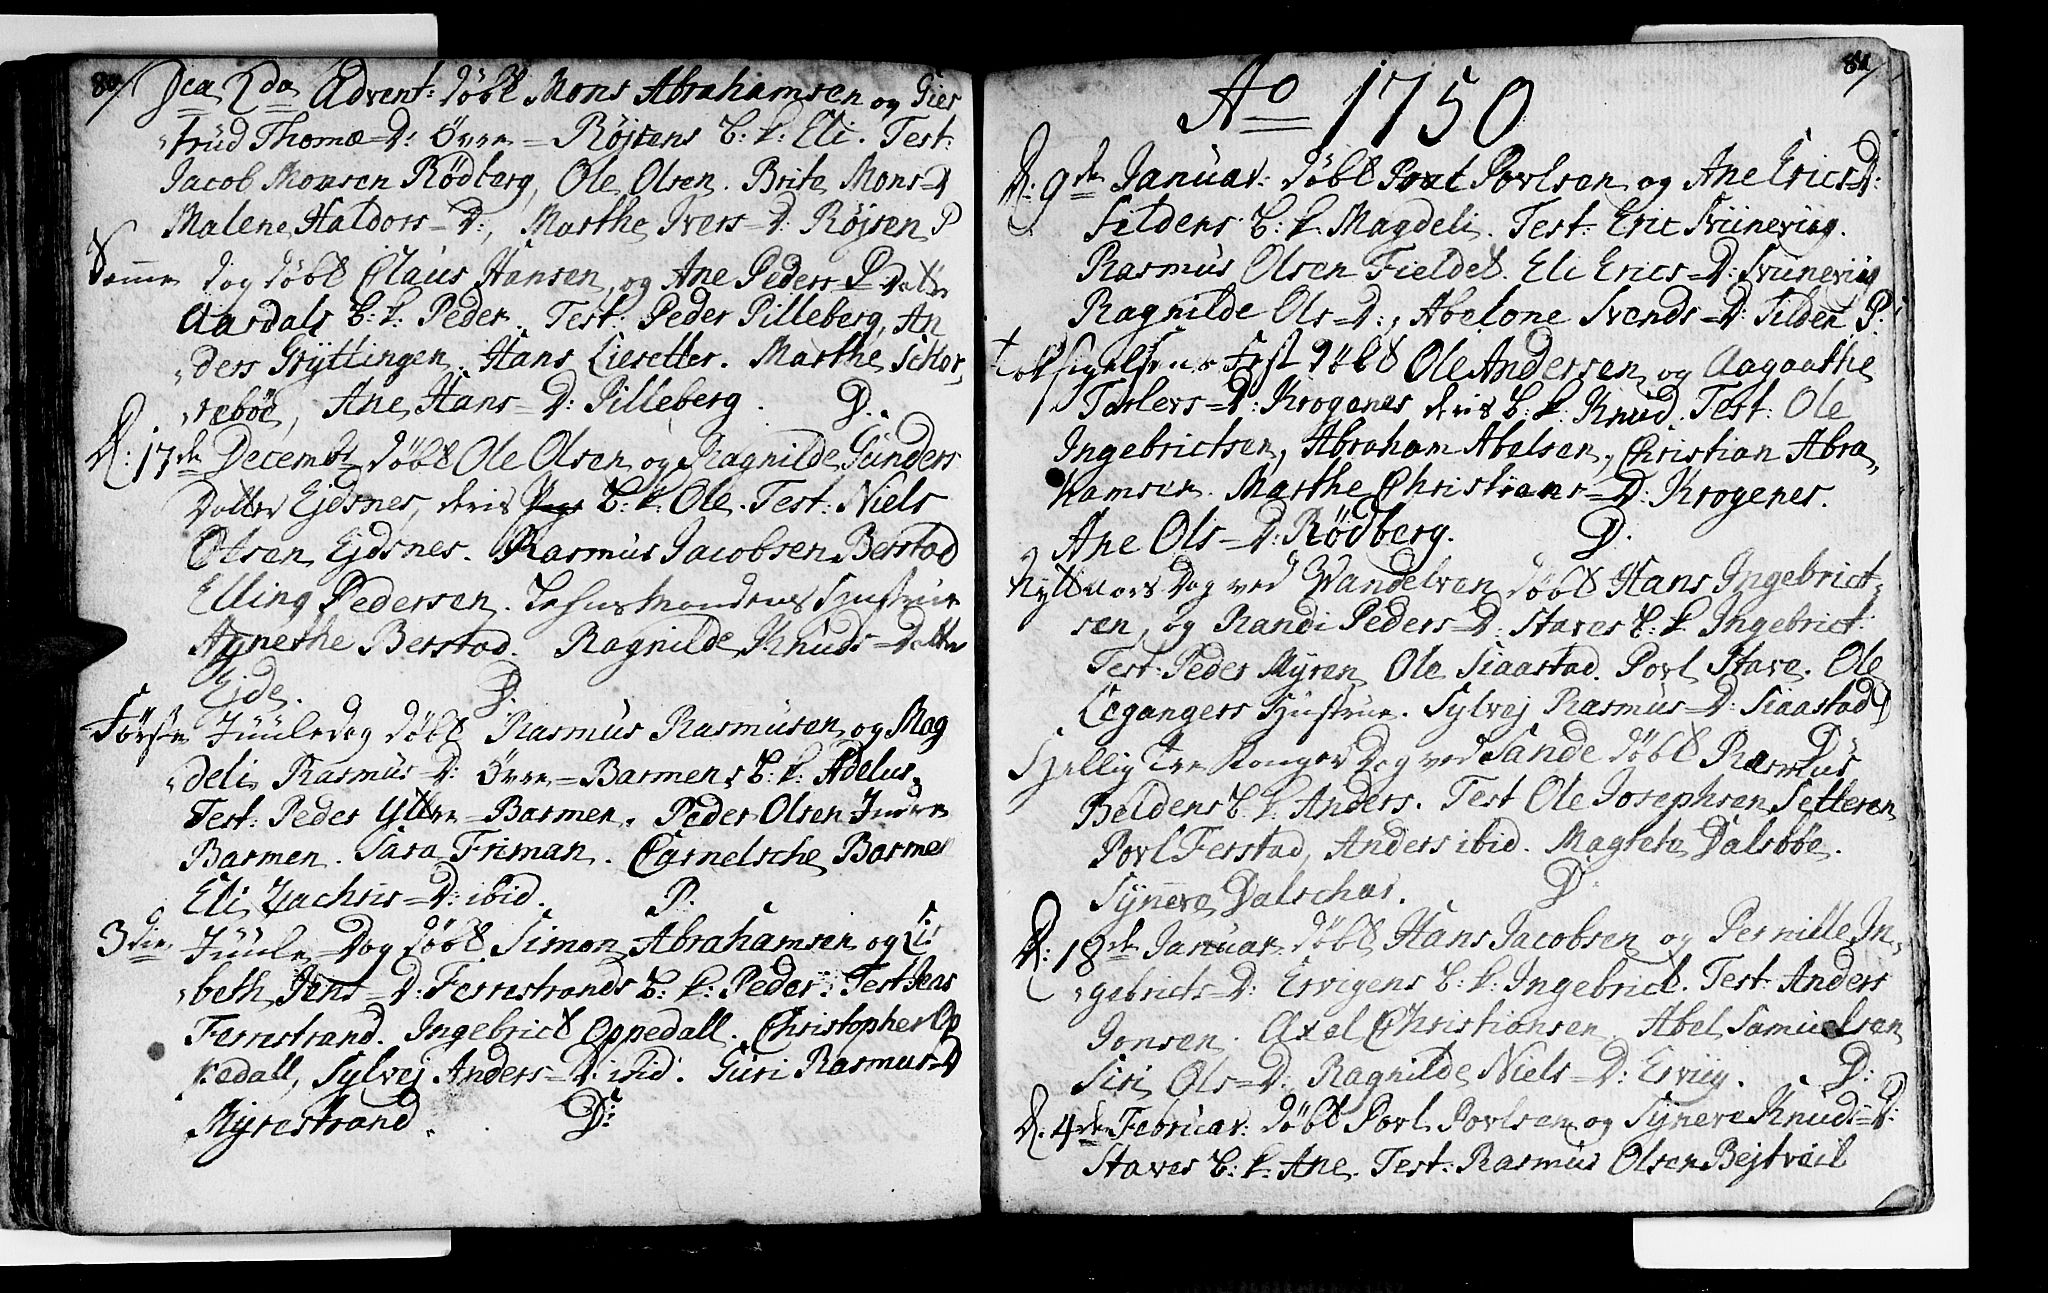 80/
Dca 2da Advent: døbt Mons Abrahamsen og Gier
trud Thomæ=D: Övre=Røjsens B: k: Eli. Test:
Jacob Monsen Rödberg, Ole Olsen. Brite Mons=D
Malene Haldors=D:, Marthe Ivers=D: Røjsen P
Samme dag døbt Claus Hansen, og Ane Peders=Datter
Aardals B: k: Peder. Test: Peder Pilleberg, An
ders Gryttingen. Hans Liesetter. Marthe Schor,
rebøe, Ane Hans=D: Pilleberg. D.
D: 17de Decembr døbt Ole Olsen og Ragnilde Gunders
Datter Ejdsnes, deris B: k: Ole. Test: Niels
Olsen Ejdsnes. Rasmus Jacobsen Berstad
Elling Pedersen. Hustrue
Agnethe Berstad. Ragnilde Knuds=Datter
Ejde. D.
Første Juuledag døbt Rasmus Rasmusen og Mag
deli Rasmus=D: Övre=Barmens B: k: Adelus.
Test: Peder Ytter=Barmen. Peder Olsen Indre
Barmen. Sara Friman. Carnelsche Barmen
Eli Zachris=D: ibid. P.
3die Juule=Dag døbt Simon Abrahamsen og Lis
beth Jens=D: Ferrestrands B: k: Peder. Test Jens
Ferrestrand. Ingebrict Oppedall. Christopher Op
pedall, Sylvej Anders=D: ibid. Guri Rasmus=D
Myrestrand. D:
81/
Ao 1750
D: 9de Januar: døbt Povel Povlsen og Ane Erics=D:
Sildens B: k. Magdeli. Test: Eric
Rasmus Olsen Fieldet. Eli Erics=D:
Ragnilde Ols=D:, Abelone Svends=D: Silden P:
Fest døbt Ole Andersen og Aagoathe
Torlevs=D: Krogenes deris B: k: Knud. Test: Ole
Ingebrictsen, Abraham Abelsen, Christian Abra,
hamsen. Marthe Christians=D: Krogenes.
Ane Ols=D: Rödberg. D.
Nyttaars Dag ved Vandelven døbt Hans Ingebrict=
sen, og Randi Peders=D: Staves B: k: Ingebrict
Test: Peder Myren Ole Siaastad. Povl Stave. Ole
Legangers Hustrue. Sylvej Rasmus=D: Siaastad D
Hellig Tre Konger Dag ved Sande døbt Rasmus
Beldens B: k: Anders. Test Ole Josephsen Setteren
Povl Ferstad, Anders ibid. Magrete Dalsbøe.
Synneva Dalschar. D
D: 18de Januar døbt Hans Jacobsen og Pernille In,
gebricts=D: Ervigens B: k: Ingebrict. Test: Anders
Jonsen. Axel Christiansen. Abel Samuelsen
Siri Ols=D: Ragnilde Niels=D: Erviig. D:
D. 4de Februar: døbt Povl Povlsen og Synneve Knuds=D:
Staves B: k: Ane. Test: Rasmus Olsen